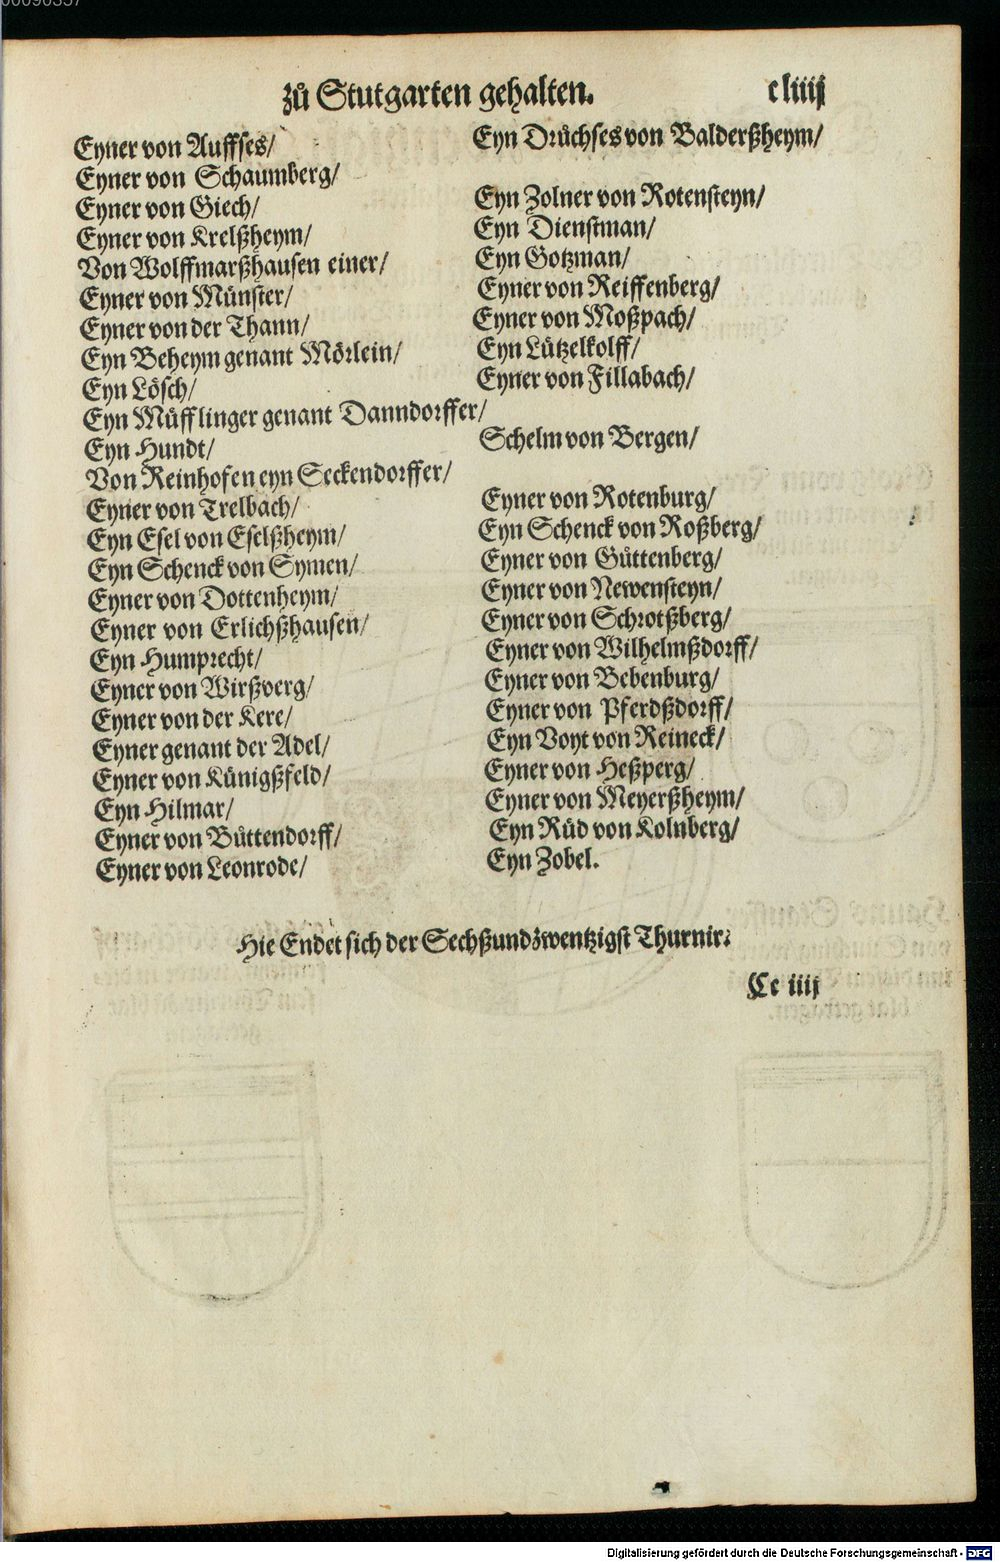 00090357
zů Stutgarten gehalten. cliiij
Eyner von Auffses/
Eyner von Schaumberg/
Eyner von Giech/
Eyner von Krelßheym/
Von Wolffmarßhausen einer/
Eyner von Münster/
Eyner von der Thann/
Eyn Beheym genant Mörlein/
Eyn Lösch/
Eyn Müfflinger genant Danndorffer/
Eyn Hundt/
Von Reinhofen eyn Seckendorffer/
Eyner von Trelbach/
Eyn Esel von Eselßheym/
Eyn Schenck von Symen/
Eyner von Dottenheym/
Eyner von Erlichßhausen/
Eyn Humprecht/
Eyner von Wirßverg/
Eyner von der Kere/
Eyner genant der Adel/
Eyner von Künigßfeld/
Eyn Hilmar/
Eyner von Büttendorff/
Eyner von Leonrode/
Eyn Drůchses von Balderßheym/
Eyn Zolner von Rotensteyn/
Eyn Dienstman/
Eyn Gotzman/
Eyner von Reiffenberg/
Eyner von Moßpach/
Eyn Lützelkolff/
Eyner von Fillabach/
Schelm von Bergen/
Eyner von Rotenburg/
Eyn Schenck von Roßberg/
Eyner von Güttenberg/
Eyner von Newensteyn/
Eyner von Schrotßberg/
Eyner von Wilhelmßdorff/
Eyner von Bebenburg/
Eyner von Pferdßdorff/
Eyn Voyt von Reineck/
Eyner von Heßperg/
Eyner von Meyerßheym/
Eyn Rüd von Kolnberg/
Eyn Zobel.
Hie Endet sich der Sechßundzwentzigst Thurnir.
Cc iiij
Digitalisierung gefördert durch die Deutsche Forschungsgemeinschaft - DFG